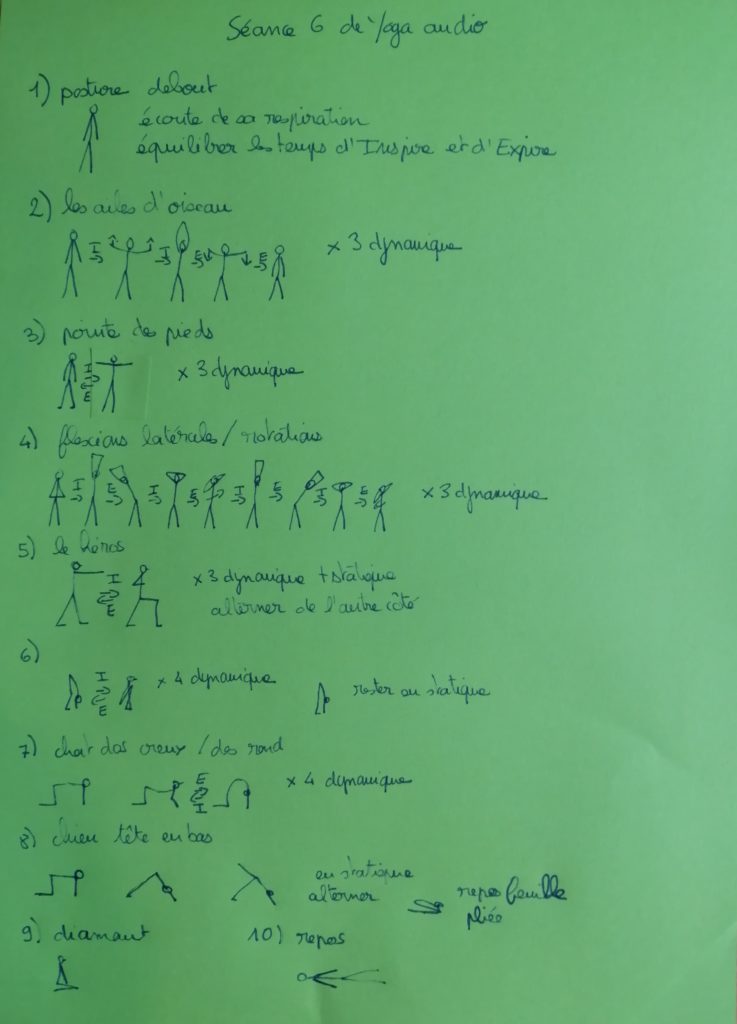 Séance 6 de Yoga audio
1) posture debout
écoute de sa respiration
équilibrer les temps d'Inspire et d'Expire
2) les ailes d'oiseau
I I E E x 3 dynamique
3) pointe des pieds
I E x 3 dynamique
4) flexions latérales / rotations
I E I E I E I E x 3 dynamique
5) le héros
I E x 3 dynamique + statique
alterner de l'autre côté
6)
I E x 4 dynamique rester en statique
7) chat dos creux / dos rond
E I x 4 dynamique
8) chien tête en bas
en statique
alterner
repos feuille
pliée
9) diamant 10) repos